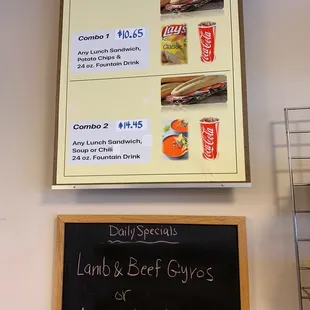 Combo 1 $10.65
Lay's
Classic
Coca-Cola
Any Lunch Sandwich,
Potato Chips &
24 oz. Fountain Drink
Combo 2 $14.45
Coca-Cola
Any Lunch Sandwich,
Soup or Chili
24 oz. Fountain Drink
Daily Specials
Lamb & Beef Gyros
or